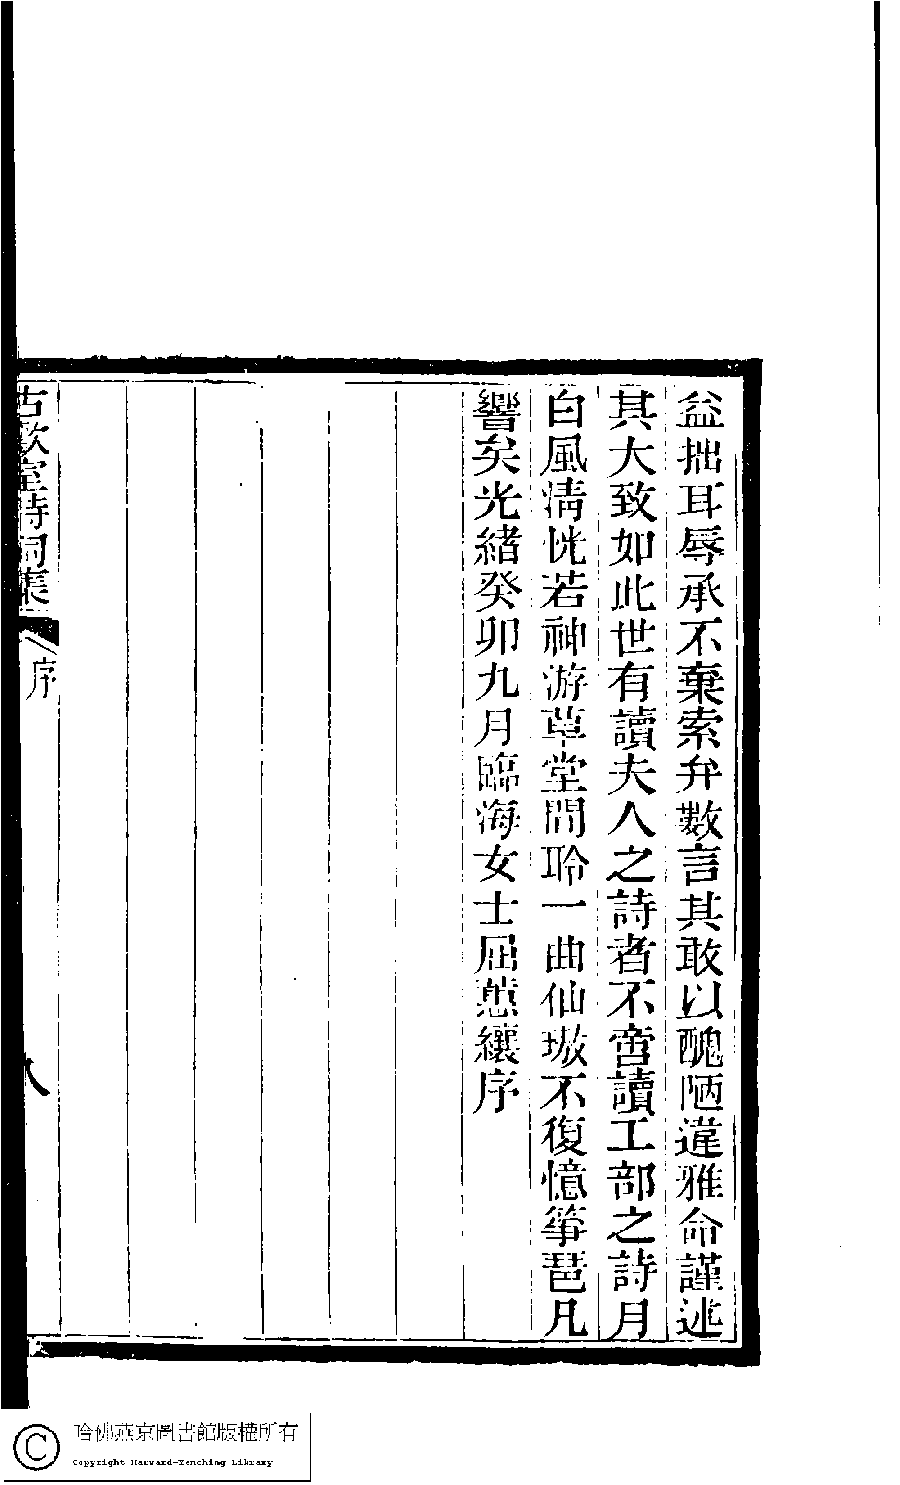 益拙耳辱承不棄索弁數言其敢以醜陋違雅命謹述
其大致如此世有讀夫人之詩者不啻讀工部之詩月
白風清恍若神游草堂間聆一曲仙璈不復憶箏琶凡
響矣光緒癸卯九月臨海女士屈蕙纕序
古歡室詩詞集
序
八
哈佛燕京圖書館版權所有
Copyright Harvard-Yenching Library